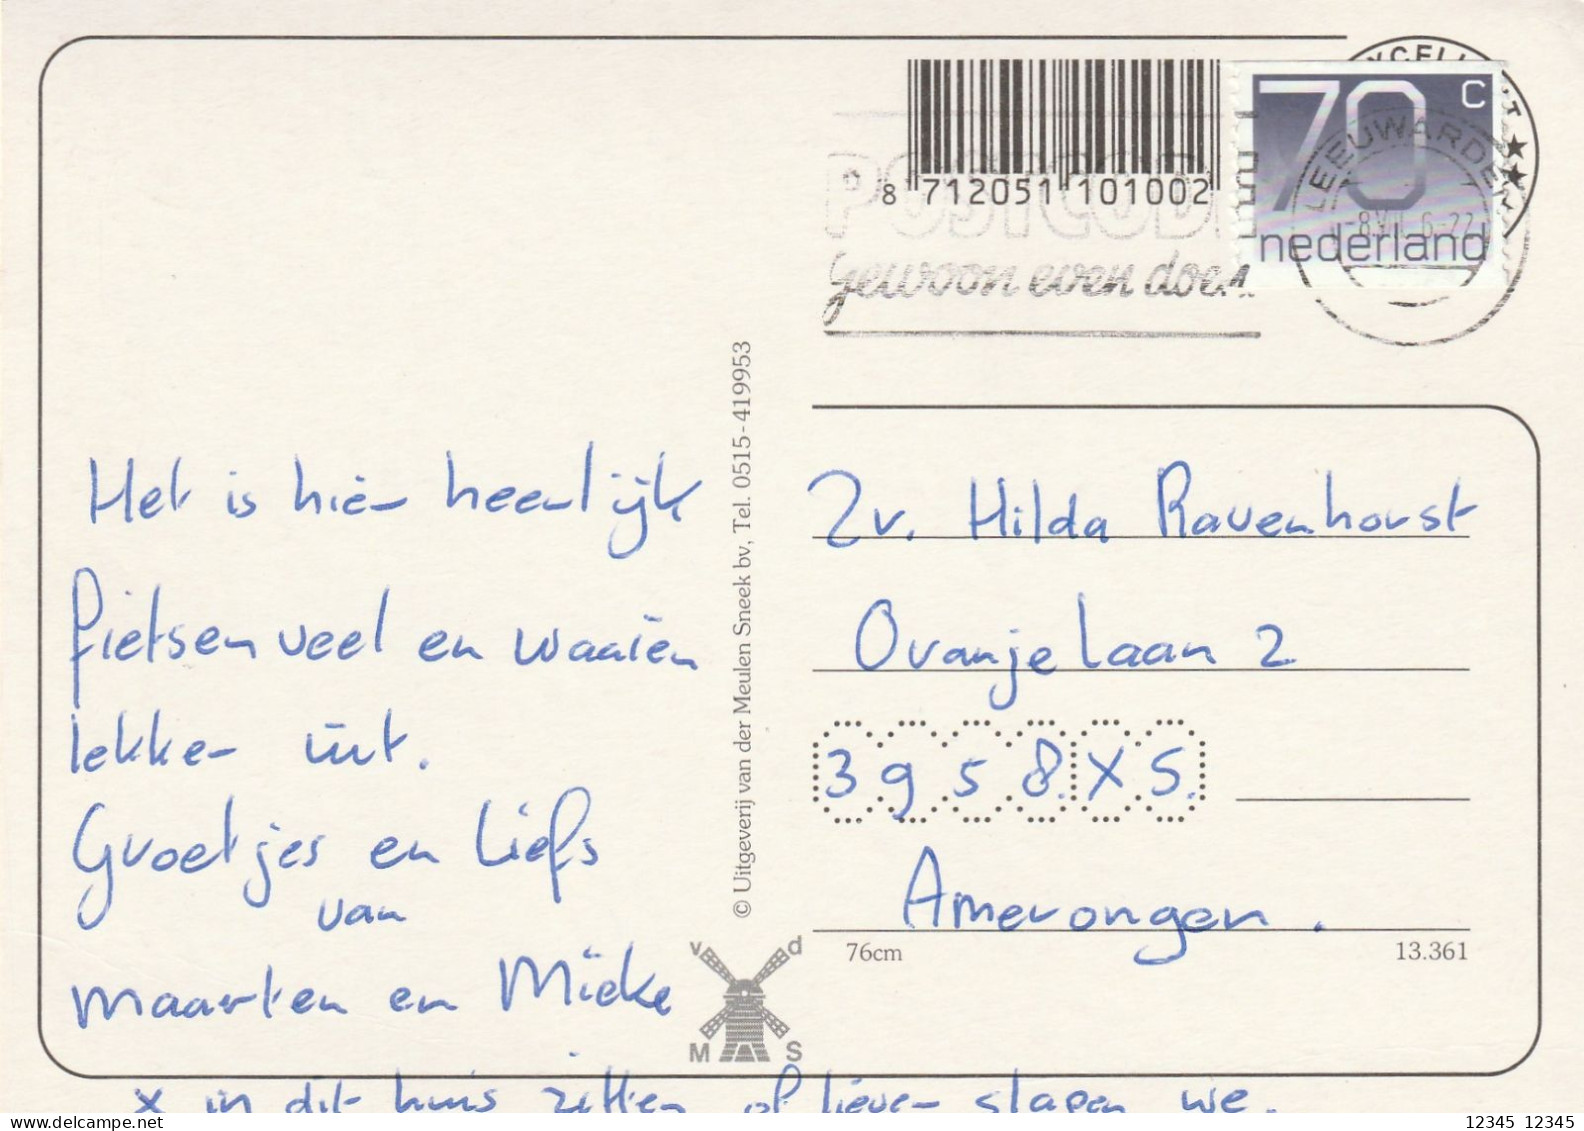 8 712051 101002
70 c
nederland
LEEUWARDEN
POSTCODE
gewoon even doen
Het is hier heerlijk
fietsen veel en waaien
lekker uit.
Groetjes en Liefs
van
Maarten en Mieke
x in dit huis zitten of liever slapen we.
© Uitgeverij van der Meulen Sneek bv, Tel. 0515-419953
v d
M S
Zr. Hilda Ravenhorst
Oranjelaan 2
3958 XS.
Amerongen.
76cm 13.361
12345 12345